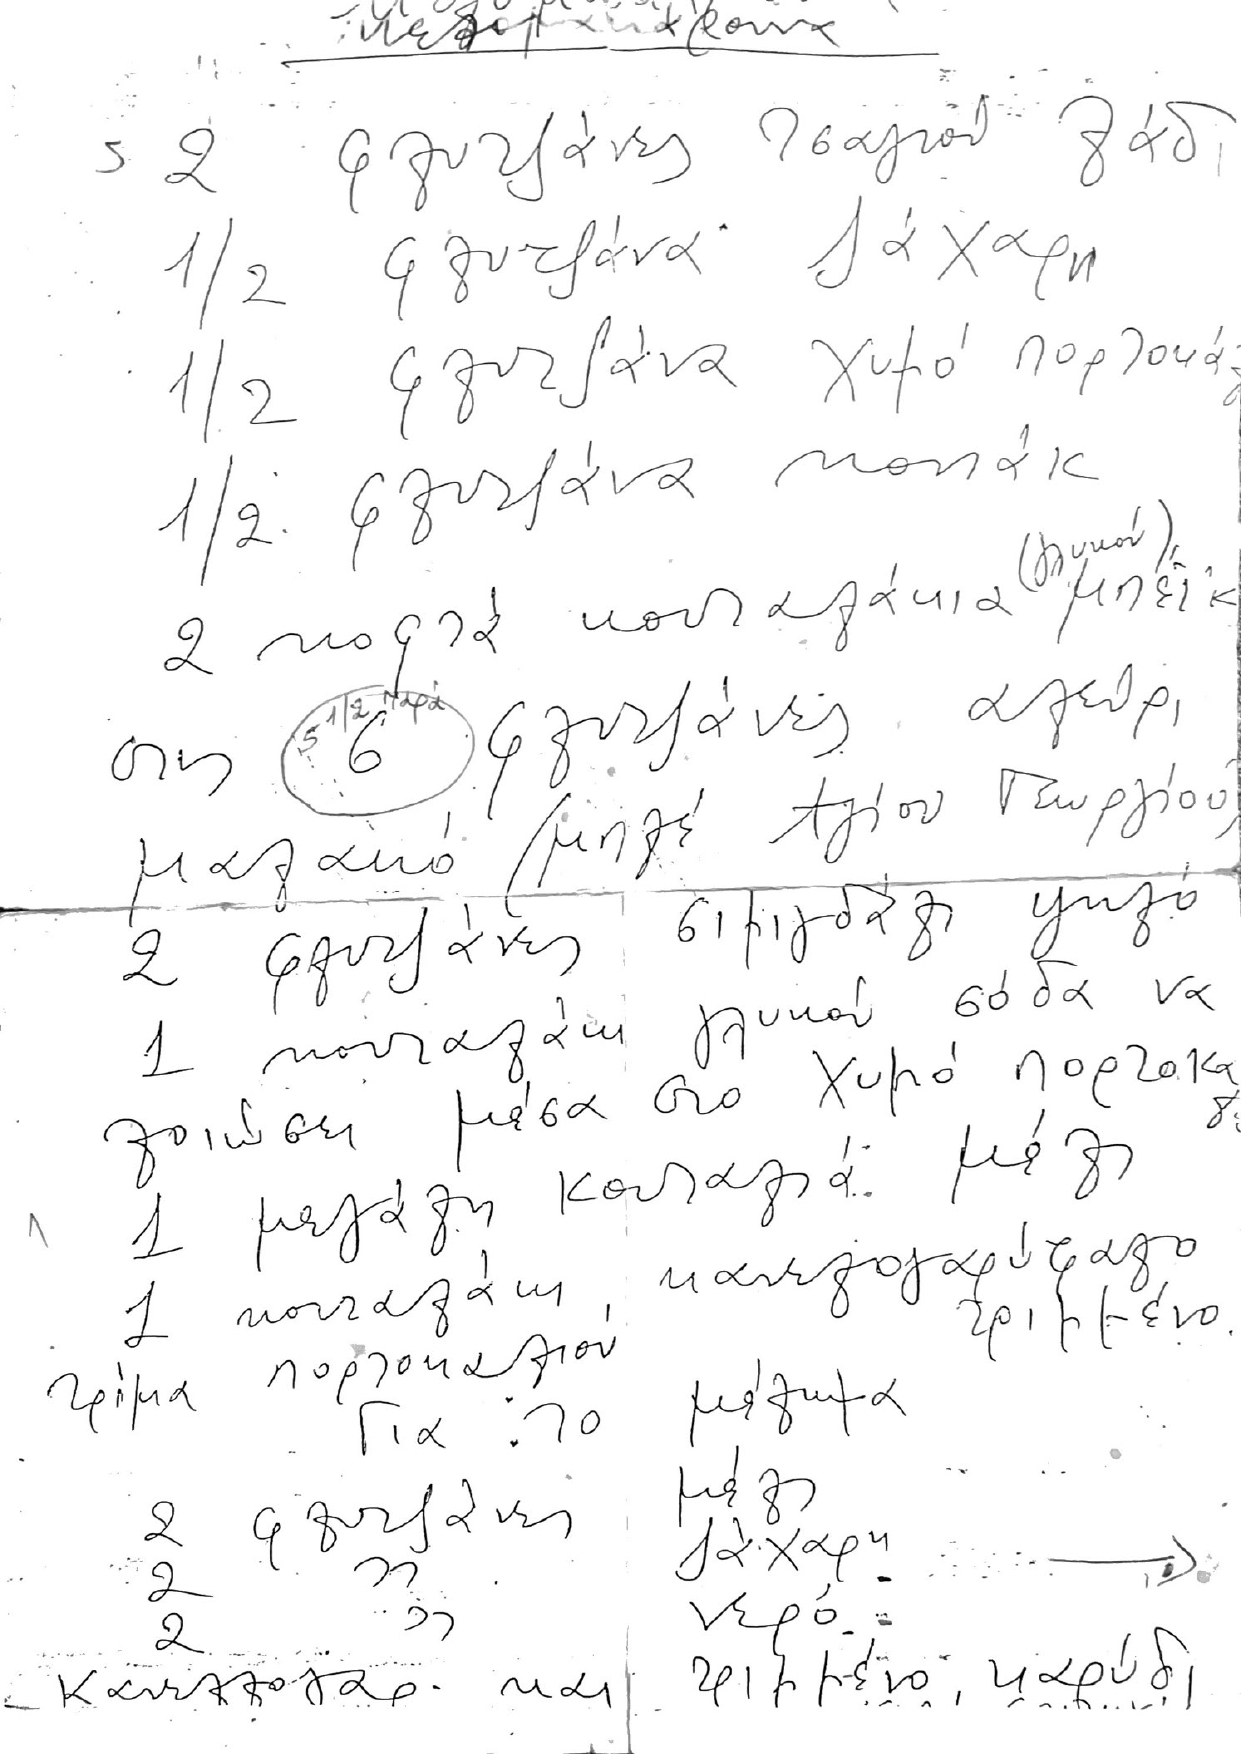 μελομακάρουνα
2 φλυτζάνες τσαγιού λάδι
1/2 φλυτζάνα ζάχαρη
1/2 φλυτζάνα χυμό πορτοκάλ
1/2 φλυτζάνα κονιάκ
2 κοφτά κουταλάκια (γλυκού) μπέϊκ
στις 6 5 1/2 παρά φλυτζάνες αλεύρι
μαλακό (μπλέ Αγίου Γεωργίου)
2 φλυτζάνες σιμιγδάλι ψιλό
1 κουταλάκι γλυκού σόδα να
λοιώσει μέσα στο χυμό πορτοκαλ
1 μεγάλη κουταλιά μέλι
1 κουταλάκι, κανελογαρύφαλο
τριμμένο.
τρίμα πορτοκαλιού
Για το μέλωμα
2 φλυτζάνες μέλι
2 " ζάχαρη
2 " νερό
Κανελλογαρ. και τριμμένο, καρύδι